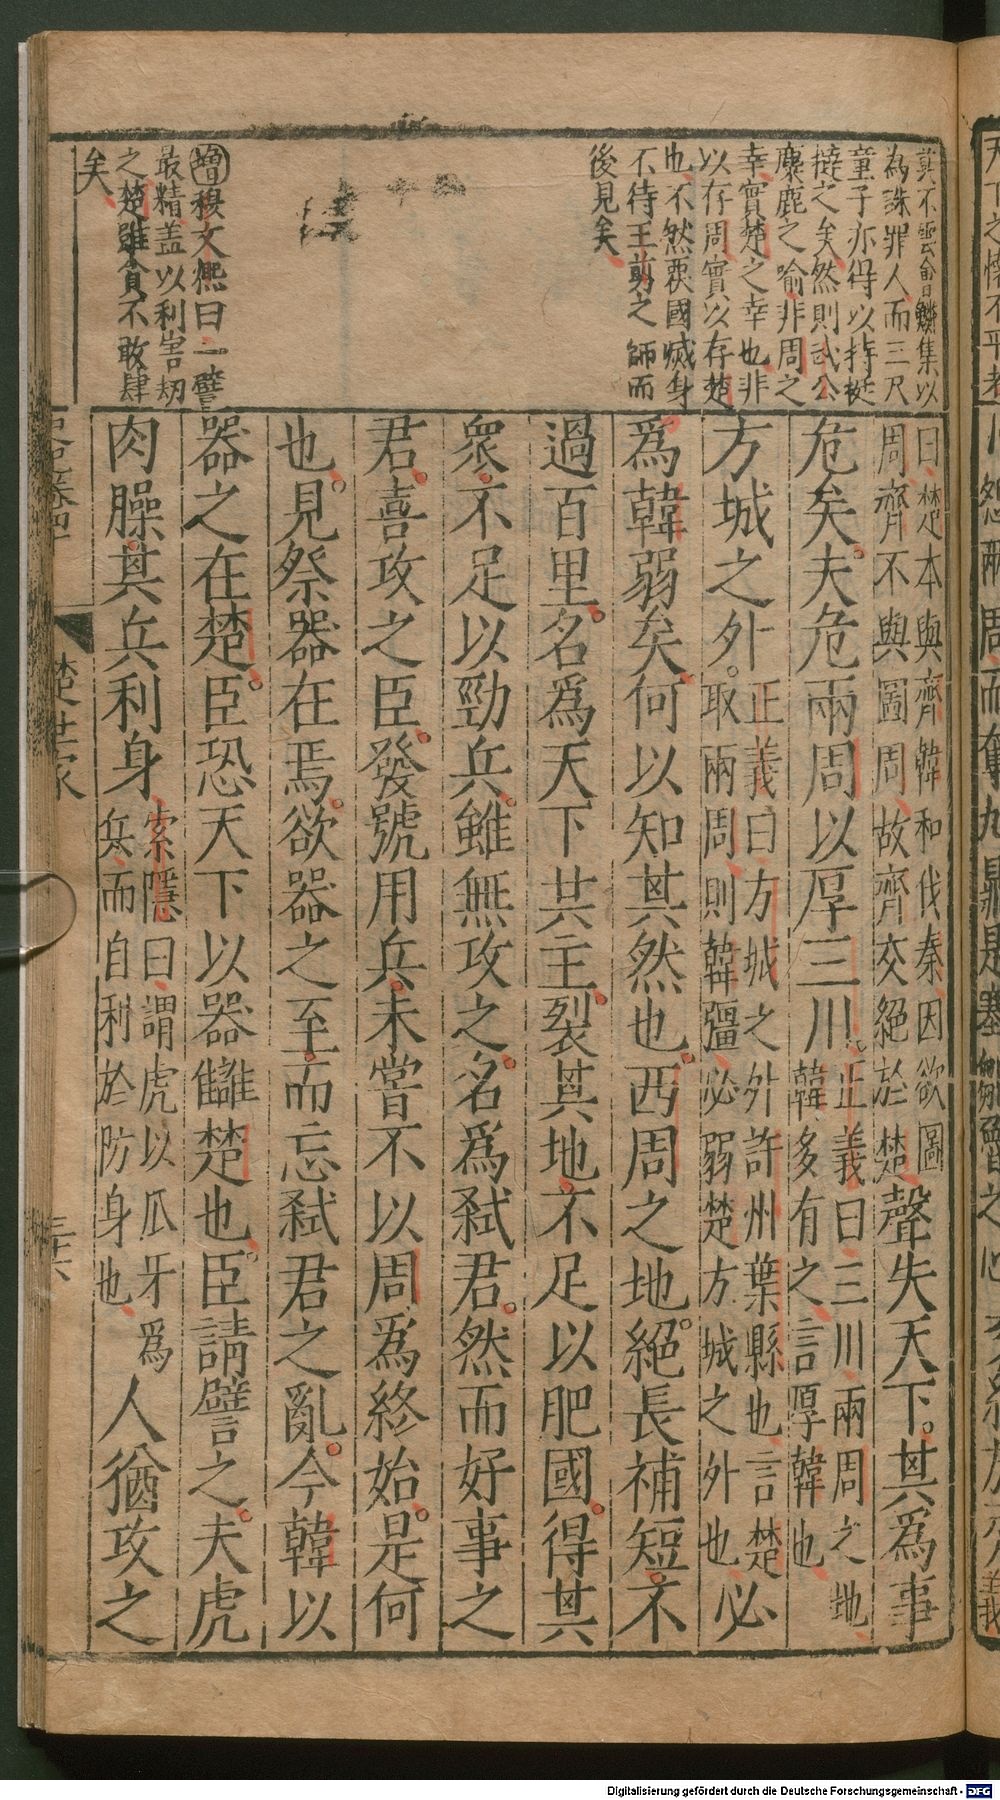 為誅罪人而三尺
童子亦得以持梃
撻之矣然則武公
麋鹿之喻非周之
幸實楚之幸也非
以存周實以存楚
也不然爽國滅身
不待王剪之師而
後見矣
增穆文熙曰一譬
最精盖以利害刼
之楚雖貪不敢肆
矣
曰楚本與齊韓和伐秦因欲圖
周齊不與圖周故齊交絕於楚
聲失天下其為事
危矣夫危兩周以厚三川
正義曰三川兩周之地
韓多有之言厚韓也
方城之外
正義曰方城之外許州葉縣也言楚
取兩周則韓彊必弱楚方城之外也
必
爲韓弱矣何以知其然也西周之地絕長補短不
過百里名爲天下共主裂其地不足以肥國得其
衆不足以勁兵雖無攻之名爲弒君然而好事之
君喜攻之臣發號用兵未嘗不以周爲終始是何
也見祭器在焉欲器之至而忘弒君之亂今韓以
器之在楚臣恐天下以器讎楚也臣請譬之夫虎
肉臊其兵利身
索隱曰謂虎以瓜牙爲
兵而自利於防身也
人猶攻之
楚世家
三十六
Digitalisierung gefördert durch die Deutsche Forschungsgemeinschaft - DFG